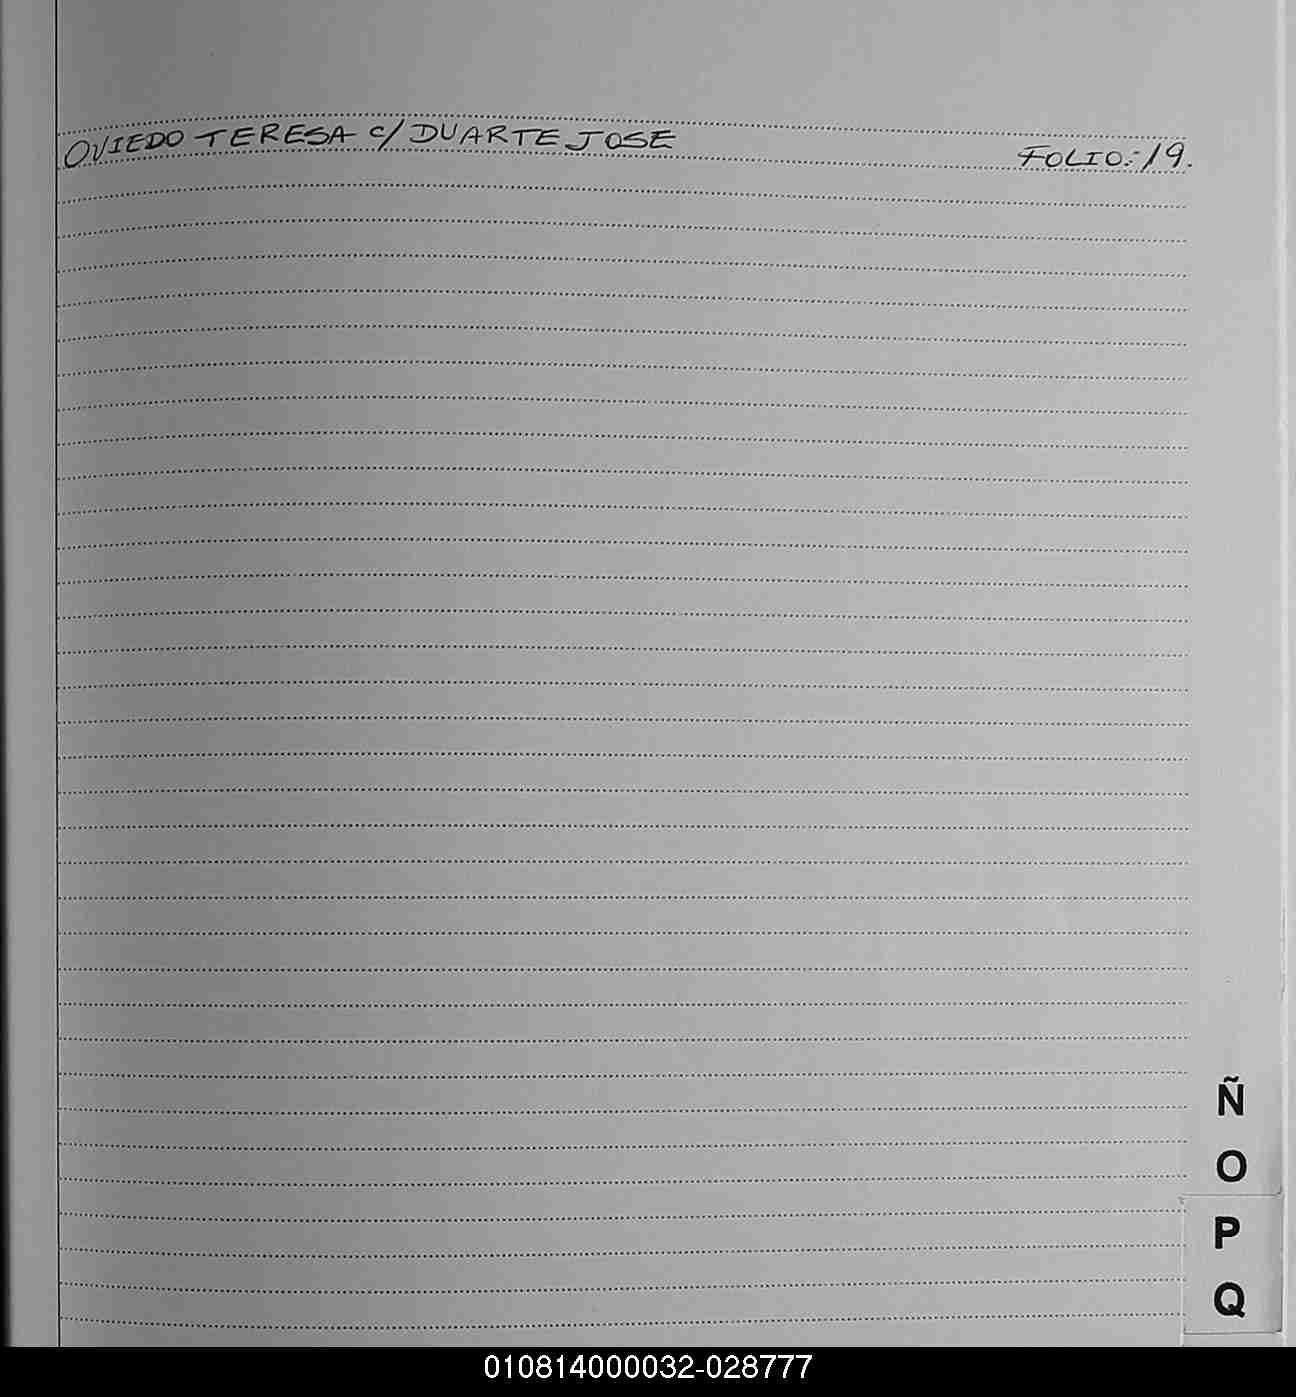 OVIEDO TERESA c/ DUARTE JOSE FOLIO:-19.
Ñ
O
P
Q
010814000032-028777